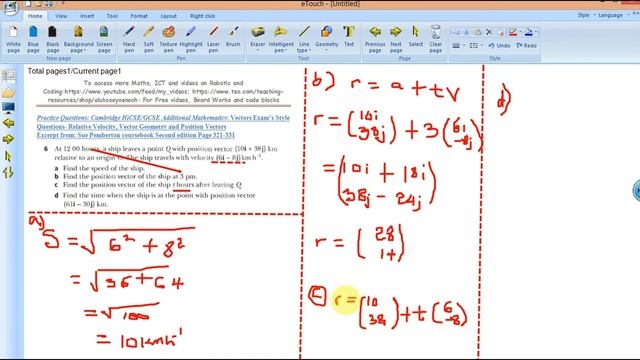 eTouch - [Untitled]
Home
Blue page
White page
Board page
Screen page
Background
Undo
Redo
Clear page
Previous page
Next page
Delete page
Select
Pen
Highlighter
Brush Pen
Eraser
Intelligent Pen
Line
Shape
Text
Fill
Resource
Tools
Total pages1/Current page1
To access more Maths, ICT and videos on Robotic and
Coding:https://www.youtube.com/feed/my_videos; https://www.tes.com/teaching-
resources/shop/alukosayoenoch: For Free videos, Board Works and code blocks
Practice Questions: Cambridge IGCSE/GCSE Additional Mathematics: Vectors Exam's Style
Questions- Relative Velocity, Vector Geometry and Position Vectors
Excerpt from: Sue Pemberton coursebook Second edition Page 321-331
6 At 12 00 hours, a ship leaves a point Q with position vector (10i + 38j) km
relative to an origin O. The ship travels with velocity (6i – 8j) km h⁻¹.
a Find the speed of the ship.
b Find the position vector of the ship at 3 pm.
c Find the position vector of the ship t hours after leaving Q.
d Find the time when the ship is at the point with position vector
(61i – 30j) km.
a)
S = √6² + 8²
= √36 + 64
= √100
= 10kmh⁻¹
b) r = a + tv
r = (10i 38j) + 3(6i -8j)
= (10i + 18i
38j - 24j)
r = (28
14)
(c) r = (10 38) + t(6 -8)
d)